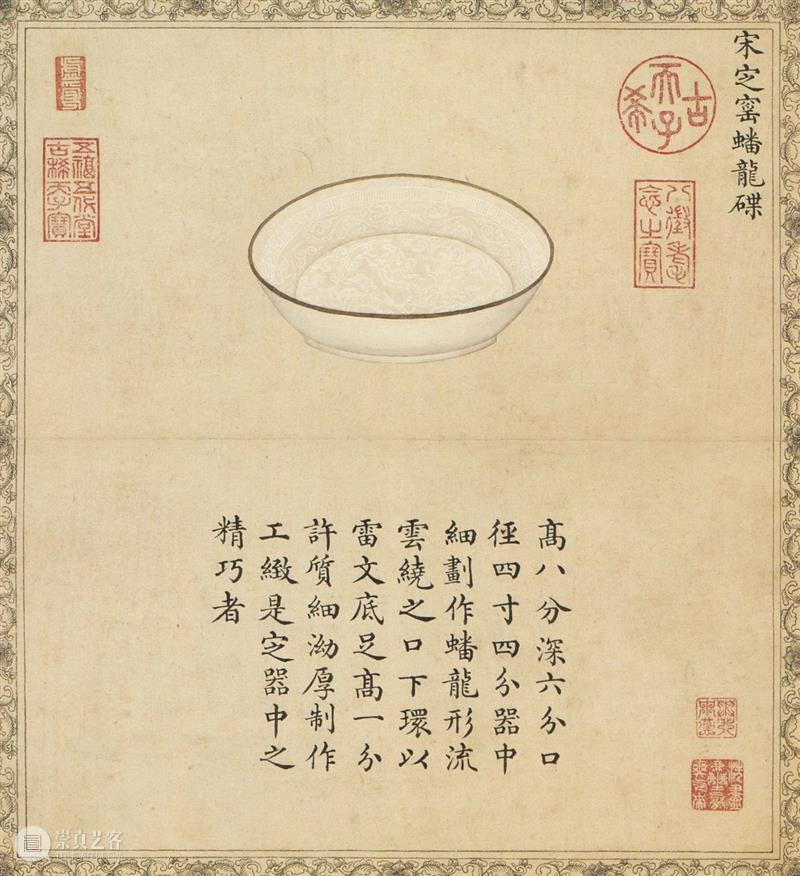 宋㝎窰蟠龍碟
古希天子
八徵耄念之寶
五福五代堂
古稀天子寶
髙八分深六分口
徑四寸四分器中
細劃作蟠龍形流
雲繞之口下環以
雷文底足髙一分
許質細泑厚制作
工緻是㝎器中之
精巧者
崇真艺客